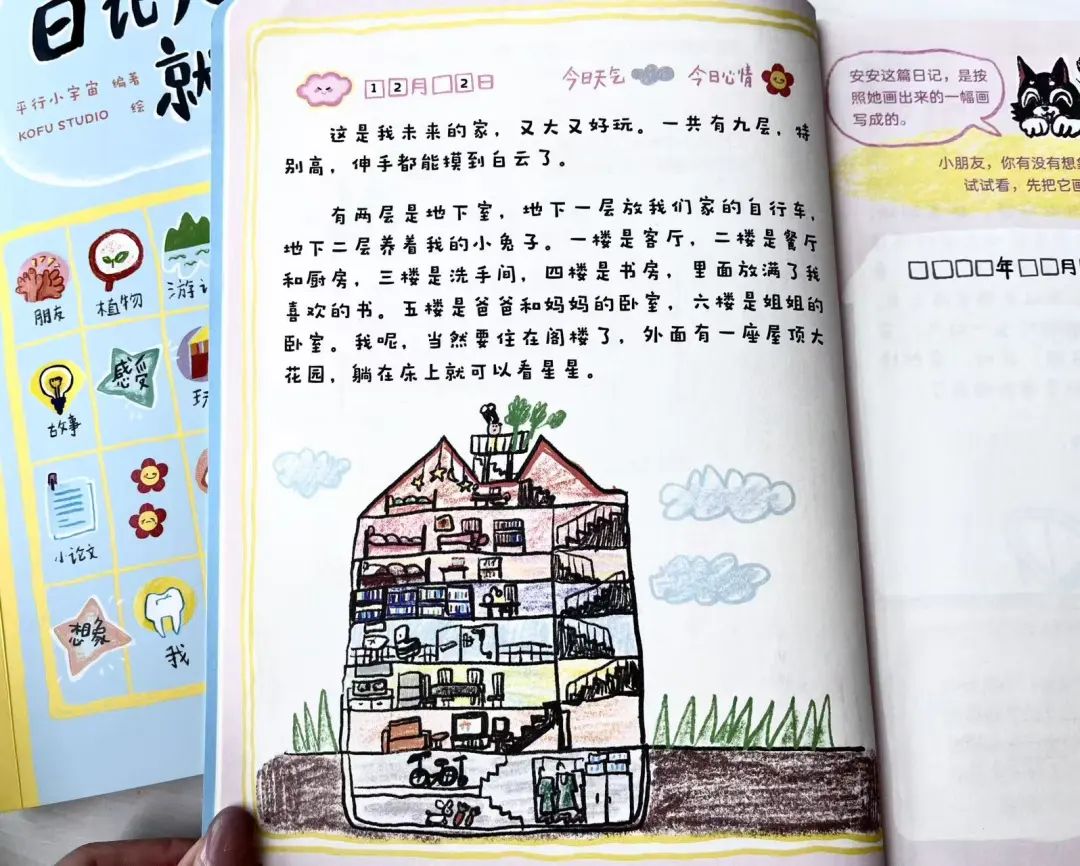 日记
就
平行小宇宙 编著
KOFU STUDIO 绘
朋友
植物
游
故事
感受
玩
小论文
想象
我
12月 2日 今日天气 今日心情
这是我未来的家，又大又好玩。一共有九层，特
别高，伸手都能摸到白云了。
有两层是地下室，地下一层放我们家的自行车，
地下二层养着我的小兔子。一楼是客厅，二楼是餐厅
和厨房，三楼是洗手间，四楼是书房，里面放满了我
喜欢的书。五楼是爸爸和妈妈的卧室，六楼是姐姐的
卧室。我呢，当然要住在阁楼了，外面有一座屋顶大
花园，躺在床上就可以看星星。
安安这篇日记，是按
照她画出来的一幅画
写成的。
小朋友，你有没有想
试试看，先把它画
□□□□年□□月